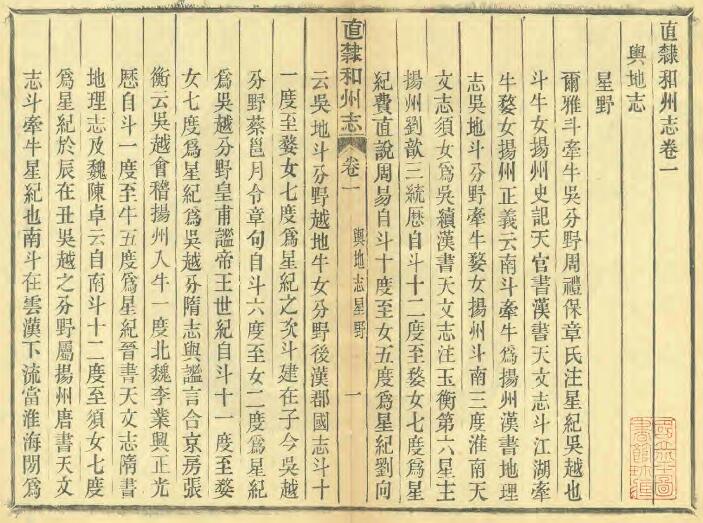 直隸和州志卷一
輿地志
星野
爾雅斗牽牛吳分野周禮保章氏注星紀吳越也
斗牛女揚州史記天官書漢書天文志斗江湖牽
牛婺女揚州正義云南斗牽牛爲揚州漢書地理
志吳地斗分野牽牛婺女揚州斗南三度淮南天
文志須女爲吳續漢書天文志注玉衡第六星主
揚州劉歆三統厯自斗十二度至婺女七度爲星
紀費直說周易自斗十度至女五度爲星紀劉向
直隸和州志
卷一
輿地志星野
一
云吳地斗分野越地牛女分野後漢郡國志斗十
一度至婺女七度爲星紀之次斗建在子今吳越
分野蔡邕月令章句自斗六度至女二度爲星紀
爲吳越分野皇甫謐帝王世紀自斗十一度至婺
女七度爲星紀爲吳越分隋志與謐言合京房張
衡云吳越會稽揚州入牛一度北魏李業興正光
厯自斗一度至牛五度爲星紀晉書天文志隋書
地理志及魏陳卓云自南斗十二度至須女七度
爲星紀於辰在丑吳越之分野屬揚州唐書天文
志斗牽牛星紀也南斗在雲漢下流當淮海閒爲